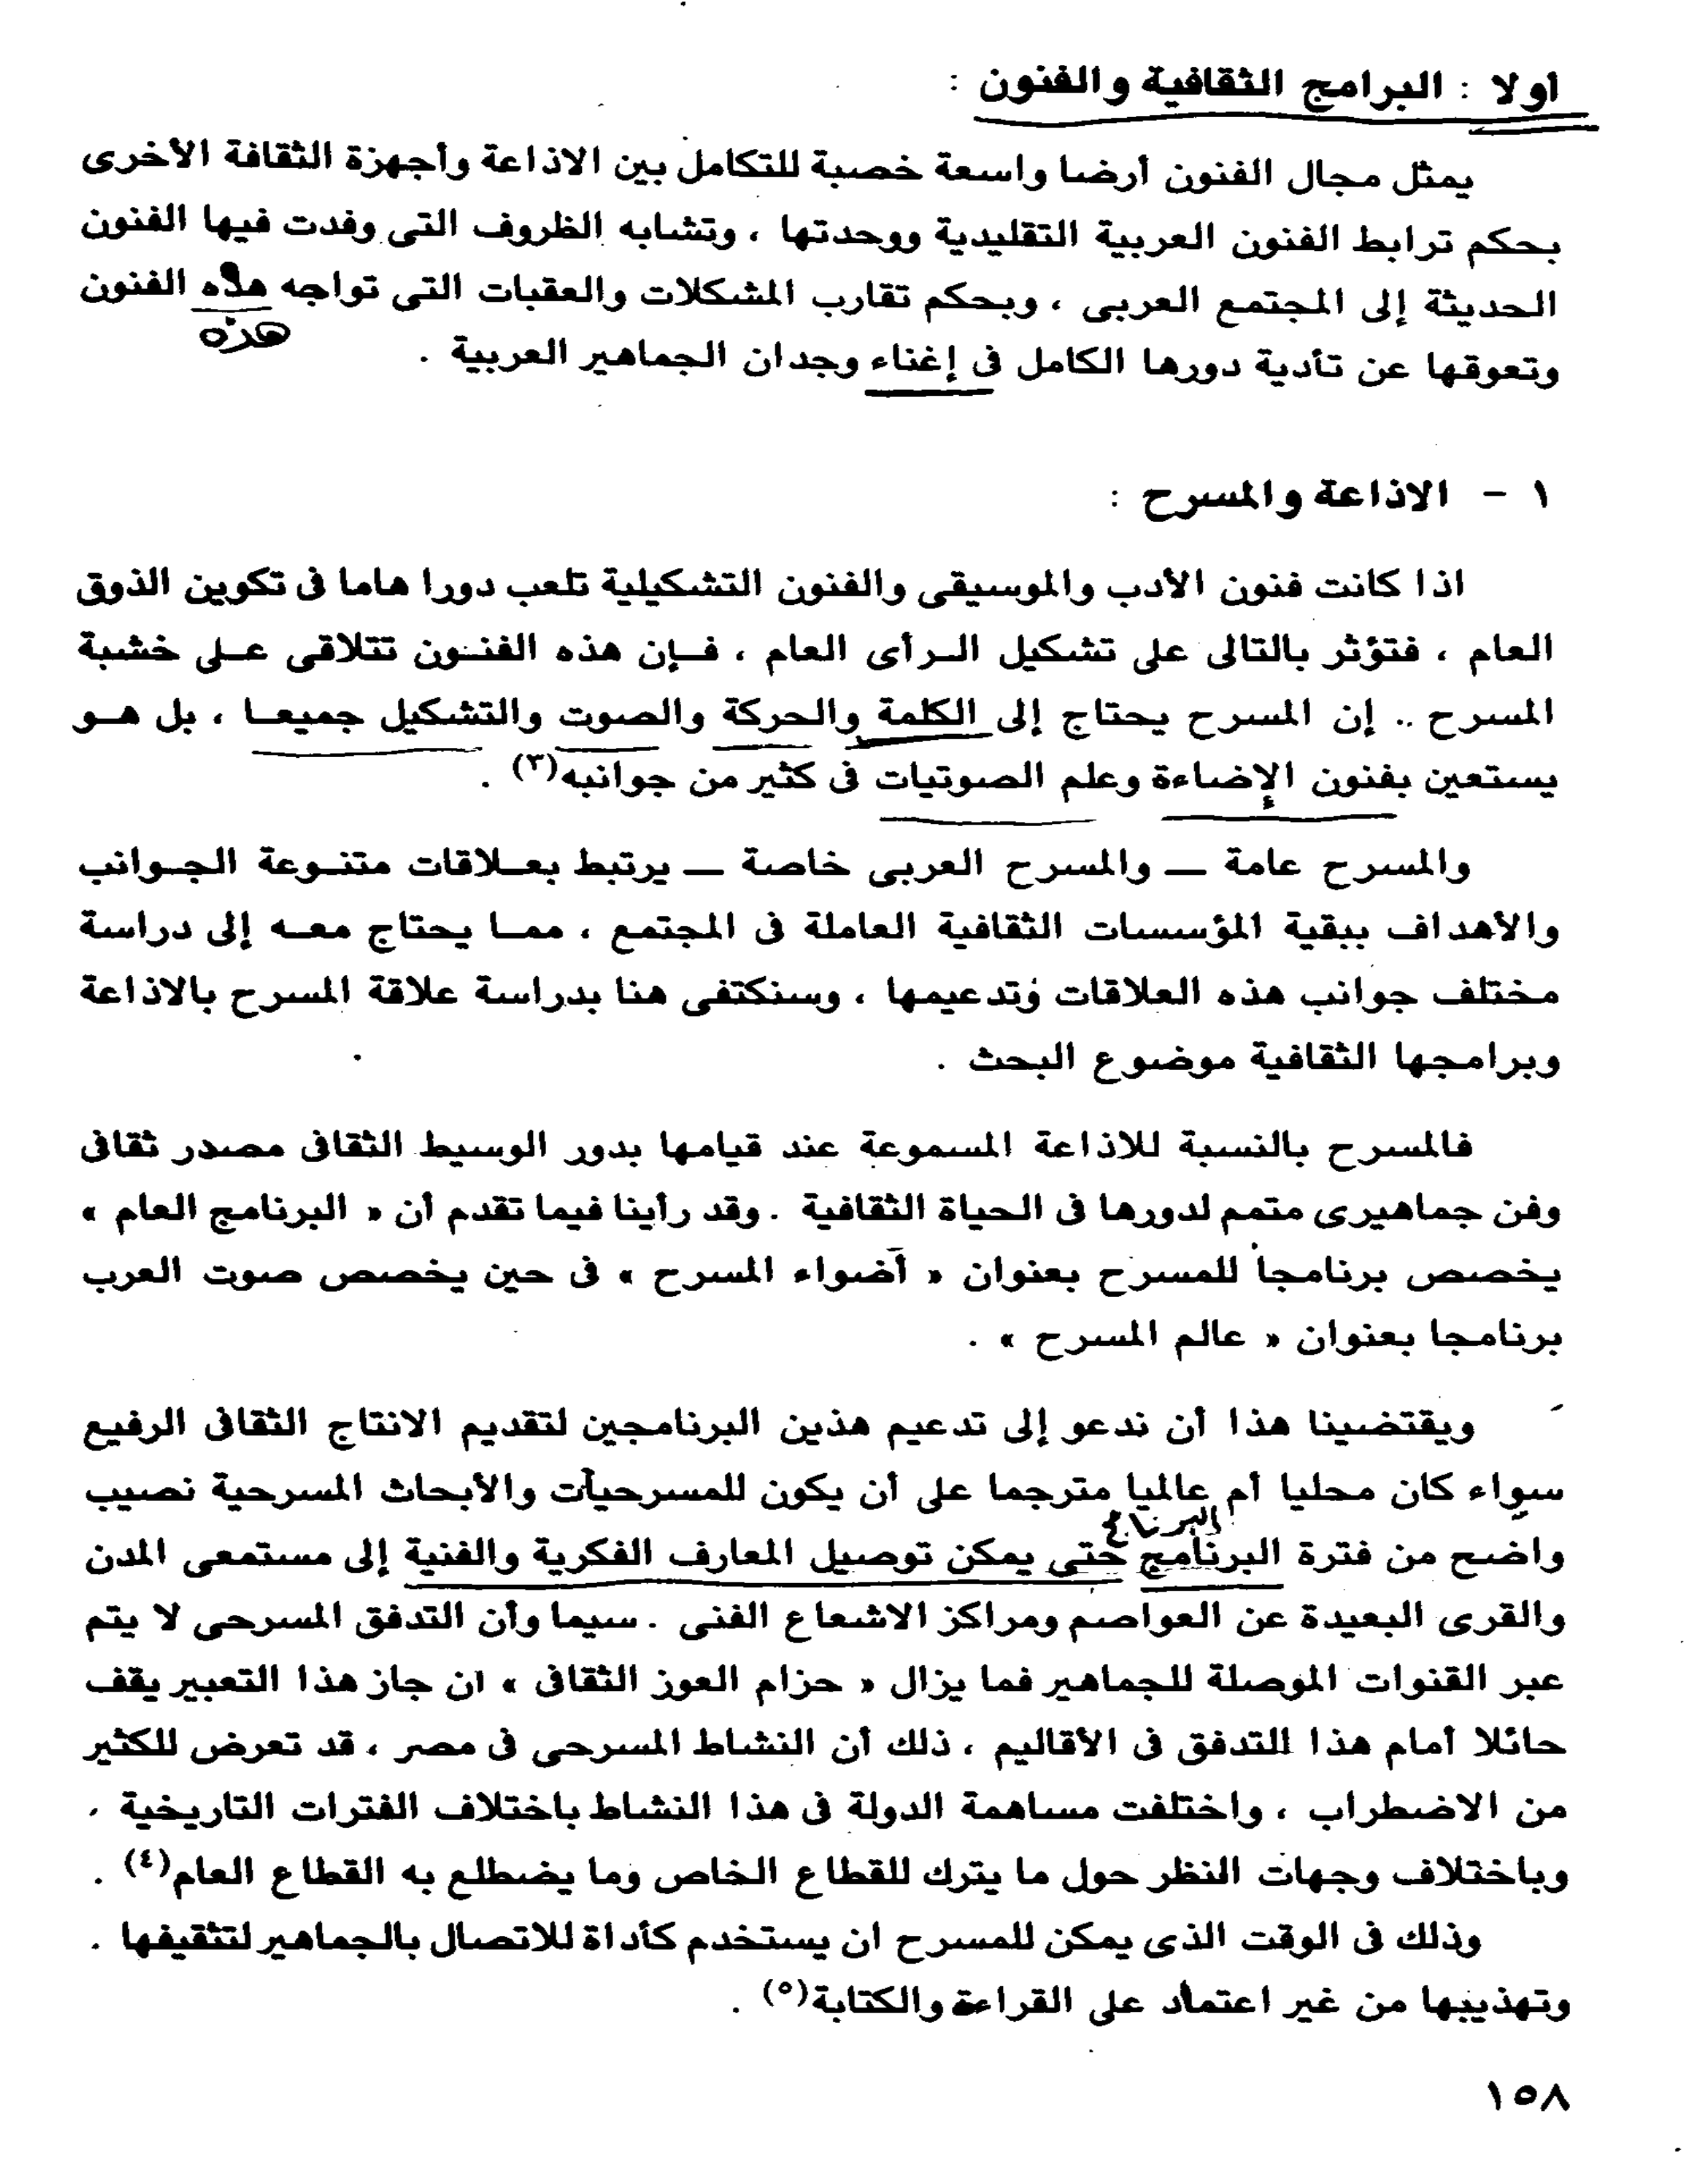 اولا : البرامج الثقافية والفنون :
يمثل مجال الفنون أرضا واسعة خصبة للتكامل بين الاذاعة وأجهزة الثقافة الأخرى
بحكم ترابط الفنون العربية التقليدية ووحدتها ، وتشابه الظروف التى وفدت فيها الفنون
الحديثة إلى المجتمع العربى ، وبحكم تقارب المشكلات والعقبات التى تواجه هذه الفنون
هذه
وتعوقها عن تأدية دورها الكامل فى إغناء وجدان الجماهير العربية .
١ - الاذاعة والمسرح :
اذا كانت فنون الأدب والموسيقى والفنون التشكيلية تلعب دورا هاما فى تكوين الذوق
العام ، فتؤثر بالتالى على تشكيل الـرأى العام ، فـإن هذه الفنـون تتلاقى عـلى خشبة
المسرح .. إن المسرح يحتاج إلى الكلمة والحركة والصوت والتشكيل جميعـا ، بل هـو
يستعين بفنون الإضاءة وعلم الصوتيات فى كثير من جوانبه(٣) .
والمسرح عامة ــ والمسرح العربى خاصة ــ يرتبط بعـلاقات متنـوعة الجـوانب
والأهداف ببقية المؤسسات الثقافية العاملة فى المجتمع ، ممـا يحتاج معـه إلى دراسة
مختلف جوانب هذه العلاقات وتدعيمها ، وسنكتفى هنا بدراسة علاقة المسرح بالاذاعة
وبرامجها الثقافية موضوع البحث .
فالمسرح بالنسبة للاذاعة المسموعة عند قيامها بدور الوسيط الثقافى مصدر ثقافى
وفن جماهيرى متمم لدورها فى الحياة الثقافية . وقد رأينا فيما تقدم أن « البرنامج العام »
يخصص برنامجا للمسرح بعنوان « أضواء المسرح » فى حين يخصص صوت العرب
برنامجا بعنوان « عالم المسرح » .
ويقتضينا هذا أن ندعو إلى تدعيم هذين البرنامجين لتقديم الانتاج الثقافى الرفيع
سواء كان محليا أم عالميا مترجما على أن يكون للمسرحيات والأبحاث المسرحية نصيب
البرنامج
واضح من فترة البرنامج حتى يمكن توصيل المعارف الفكرية والفنية إلى مستمعى المدن
والقرى البعيدة عن العواصم ومراكز الاشعاع الفنى . سيما وأن التدفق المسرحى لا يتم
عبر القنوات الموصلة للجماهير فما يزال « حزام العوز الثقافى » ان جاز هذا التعبير يقف
حائلا أمام هذا التدفق فى الأقاليم ، ذلك أن النشاط المسرحى فى مصر ، قد تعرض للكثير
من الاضطراب ، واختلفت مساهمة الدولة فى هذا النشاط باختلاف الفترات التاريخية ،
وباختلاف وجهات النظر حول ما يترك للقطاع الخاص وما يضطلع به القطاع العام(٤) .
وذلك فى الوقت الذى يمكن للمسرح ان يستخدم كأداة للاتصال بالجماهير لتثقيفها .
وتهذيبها من غير اعتماد على القراءة والكتابة(٥) .
١٥٨